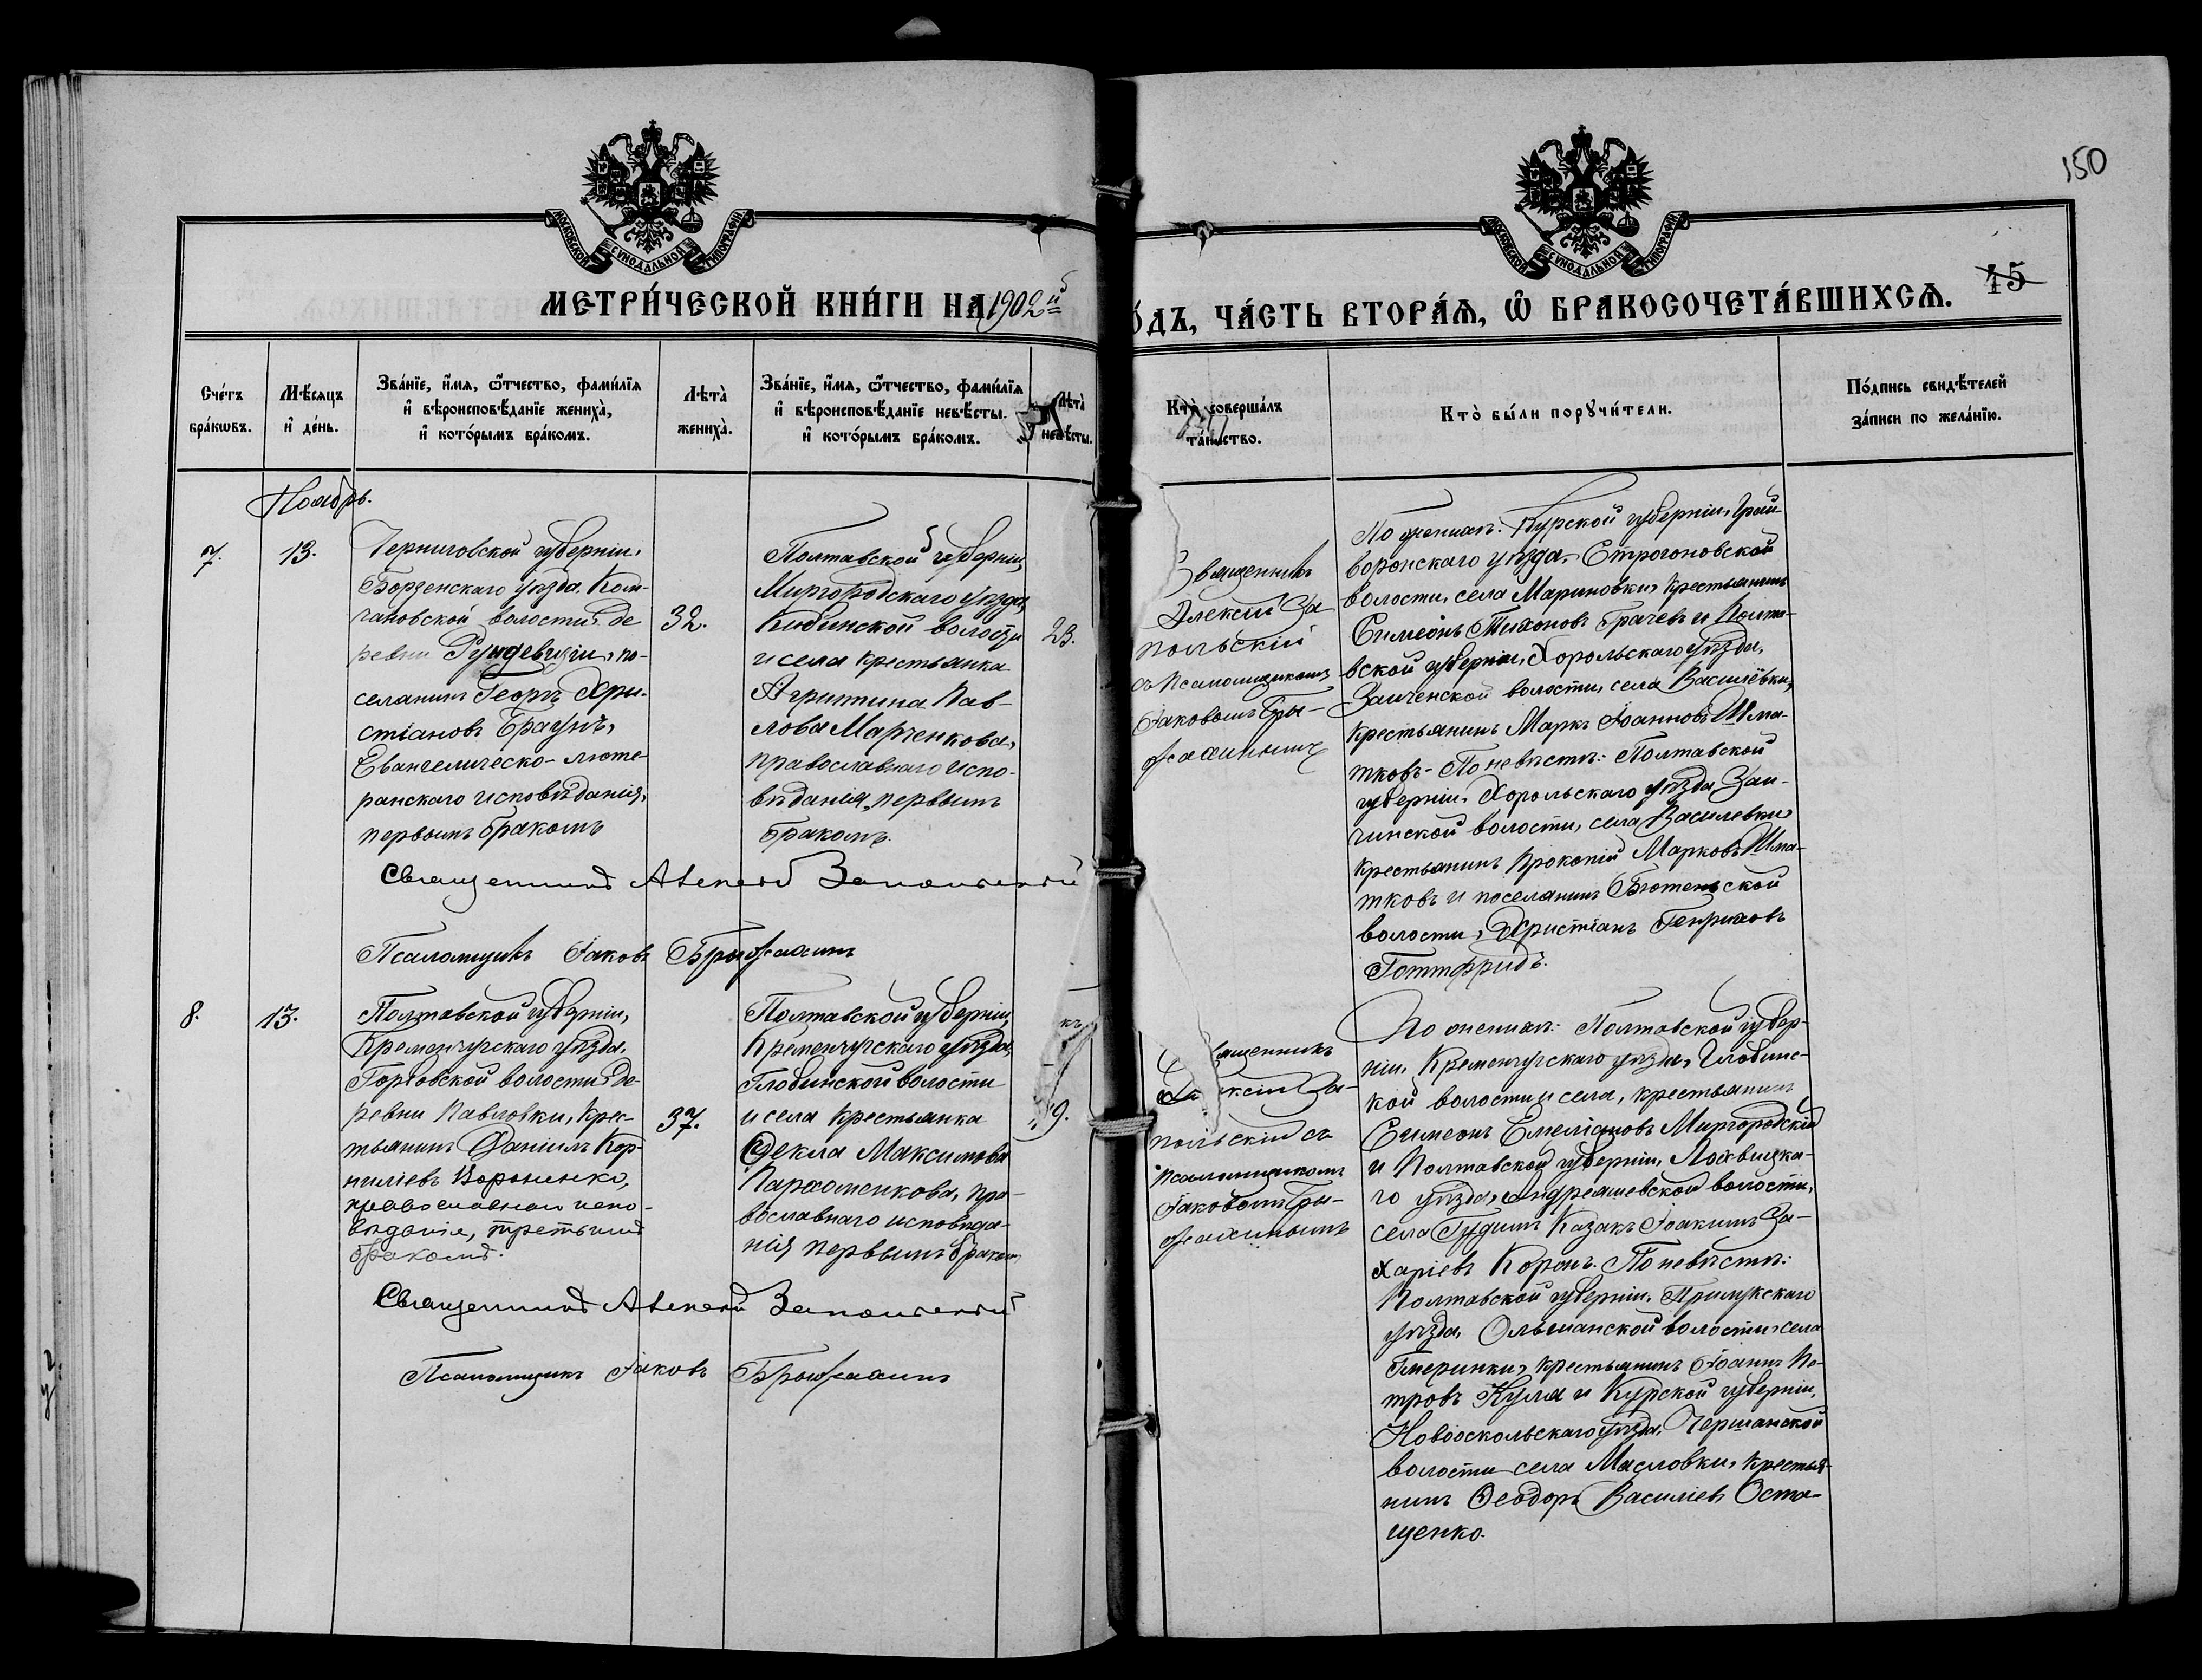 150
МОСКОВСКОЙ СѴНОДАЛЬНОЙ ТИПОГРАФІИ
МОСКОВСКОЙ СѴНОДАЛЬНОЙ ТИПОГРАФІИ
МЕТРИ́ЧЕСКОЙ КНИ́ГИ НА 1902й
О́ДЪ, ЧА́СТЬ ВТОРА́Ѧ, Ѽ БРАКОСОЧЕТА́ВШИХСѦ.
45
Сче́тъ
бра́кѡвъ.
Мѣ́сяцъ
и҆ де́нь.
Зва́нїе, и҆́мѧ, ѻ҆́тчество, фами́лїѧ
и҆ вѣроисповѣ́данїе жениха̀,
и҆ кото́рымъ бра́комъ.
Лѣта̀
жениха̀.
Зва́нїе, и҆́мѧ, ѻ҆́тчество, фами́лїѧ
и҆ вѣроисповѣ́данїе невѣ́сты.
и҆ кото́рымъ бра́комъ.
Лѣта̀
невѣ́сты.
Кто̀ соверша́лъ
та́инство.
Кто̀ бы́ли порꙋчи́тели.
По́дпись свидѣ́телей
за́писи по жела́нїю.
Ноябрь.
7.
13.
Черниговской губерніи,
Борзенскаго уѣзда, Ком-
чановской волости, де
ревни Рундевизіи, по-
селанинъ Георгъ Хри-
стіановъ Браунъ,
Евангелическо-люте-
ранскаго исповѣданія,
первымъ бракомъ
32.
Полтавской губерніи,
Миргородскаго уѣзда,
Кибинской волости
и села крестьянка
Агрипина Пав-
лова Марченкова,
православнаго испо-
вѣданія, первымъ
бракомъ.
23.
Священникъ
Алексій За
польскій
съ псаломщикомъ
Іаковомъ
По женихѣ: Курской губерніи, Грай-
воронскаго уѣзда, Строгоновской
волости, села Мариновки, крестьянинъ
Симеонъ Тихоновъ Грачевъ и Полта-
вской губерніи, Хорольскаго уѣзда,
Заиченской волости, села Василёвки,
крестьянинъ Маркъ Іоанновъ Шма-
тковъ - По невѣстѣ: Полтавской
губерніи, Хорольскаго уѣзда, Заи-
чинской волости, села Василевки
крестьянинъ Прокопій Марковъ Шма-
тковъ и поселанинъ Бютеньской
волости, Христіанъ Генриховъ
Готтфридъ.
Священникъ Алексій Запольскій
Псаломщикъ Іаковъ
8.
13.
Полтавской губерніи,
Кременчугскаго уѣзда,
волости де-
ревни Павловки, крес-
тьянинъ Даніилъ Кор-
ниліевъ Вороненко,
православнаго испо-
вѣданія, третьимъ
бракомъ.
37.
Полтавской губерніи,
Кременчугскаго уѣзда,
Глобинской волости
и села крестьянка
Ѳекла Максимова
Пархоменкова, пра-
вославнаго исповѣда-
нія первымъ бракомъ
19.
ященникъ
ксій За-
польскій съ
псаломщикомъ
Іаковомъ
По женихѣ: Полтавской губер-
ніи, Кременчугскаго уѣзда, Глобинс-
кой волости и села, крестьянинъ
Симеонъ Емеліановъ Миргородскій
и Полтавской губерніи, Лохвицка-
го уѣзда, Андреяшевской волости,
села Гудимъ Казакъ Іоакимъ За-
харіевъ Коронъ. По невѣстѣ:
Полтавской губерніи, Прилукскаго
уѣзда, Ольшанской волости, села
крестьянинъ Іоаннъ Пе-
тровъ Кула и Курской губерніи,
Новооскольскаго уѣзда, Чернянской
волости села Масловки, крестья-
нинъ Ѳеодоръ Василіевъ Оста-
щенко.
Священникъ Алексій Запольскій
Псаломщикъ Іаковъ